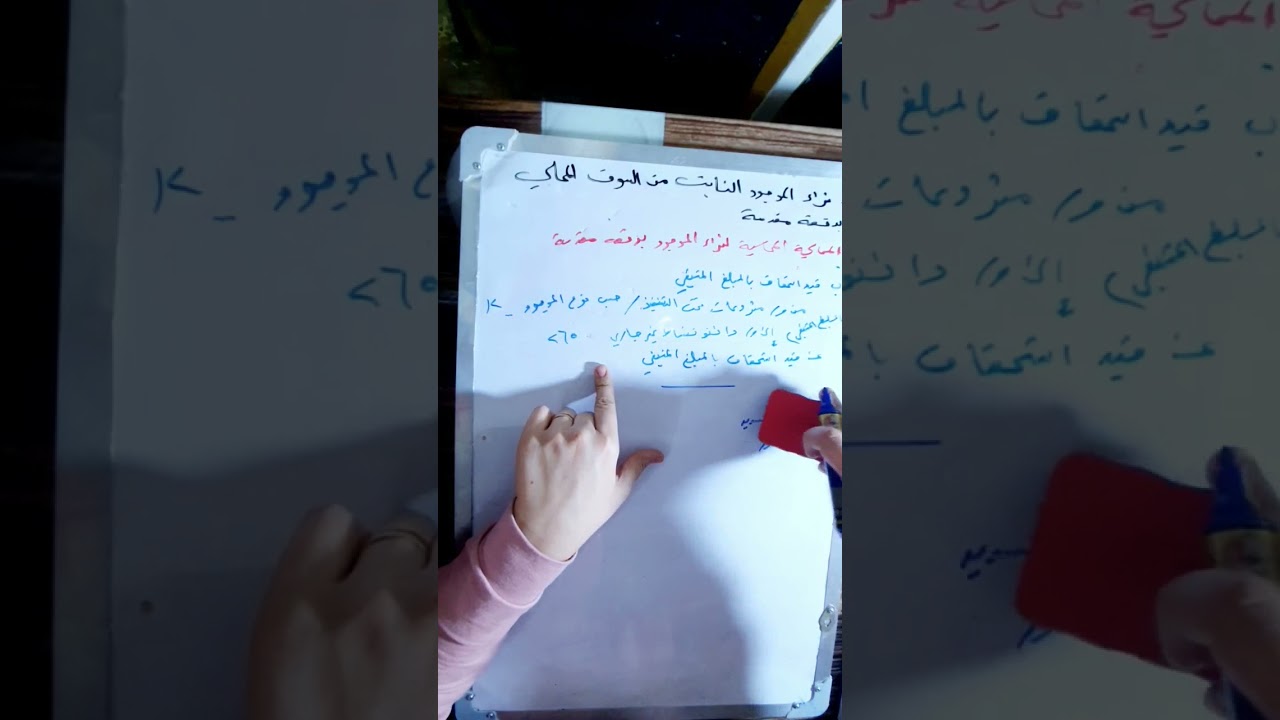 شراء الموجود الثابت من السوق المحلي
بدفعة مقدمة
المعالجة المحاسبية لشراء الموجود بدفعة مقدمة
قيد استحقاق بالمبلغ المتبقي
من حـ/ مشروعات تحت التنفيذ / حسب نوع الموجود _ ١٢
المبلغ المتبقي إلى حـ/ دائنو نشاط غير جاري ٢٦٥
عن قيد استحقاق بالمبلغ المتبقي